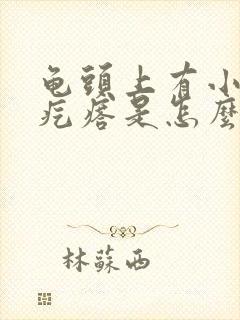 龟頭上有小
疙瘩是怎麼
林蘇西